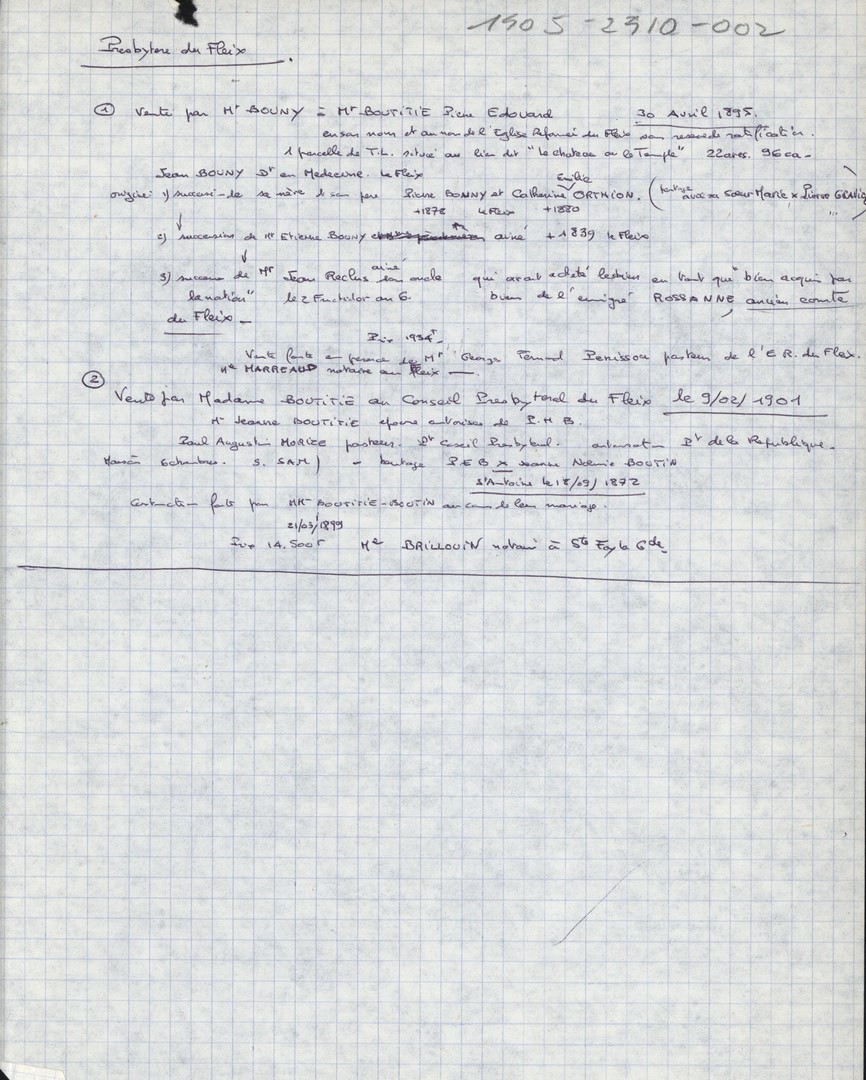 1905-2310-002
Presbytère du Fleix
① Vente par Mr BOUNY à Mr BOUTITIE Pierre Edouard 30 Avril 1895.
en son nom et au nom de l'Eglise Réformée du Fleix sans ratification.
1 parcelle de T.L. située au lieu dit "Le chateau ou le Temple" 22 ares. 96 ca -
Jean BOUNY Dr en Medecine. Le Fleix
Emilie
origine 1) succession de sa mère et son père Pierre BONNY et Catherine ORTHION. (partage avec sa soeur Marie x Pierre
+1878 le Fleix +1880
2) succession de Mr Etienne BOUNY ainé +1839 le Fleix
3) de Mr Jean Reclus ainé son oncle qui avait acheté les biens en tant que "bien acquis par
la nation" le 2 Fructidor an 6. biens de l'émigré ROSSANNE, ancien comte
du Fleix -
Prix 1934f -
Vente faite en présence de Mr George Fernand Penissou pasteur de l'E.R. du Fleix.
Me MARREAUD notaire au Fleix -
② Vente par Madame BOUTITIE au Conseil Presbyteral du Fleix le 9/02/1901
Me Jeanne BOUTITIE epouse autorisée de P.H.B.
Paul Augustin MORIZE pasteur. Pt Conseil Presbyteral. autorisation Pt de la Republique -
Maison 6 chambres. S. SAM) - P E B x Jeanne Noémie BOUTIN
St Antoine le 18/09/1872
Construction faite par MMe BOUTITIE-BOUTIN au cours de leur mariage.
21/03/1899
Prix 14.500f Me BRILLOUIN notaire à Ste Foy la Gde